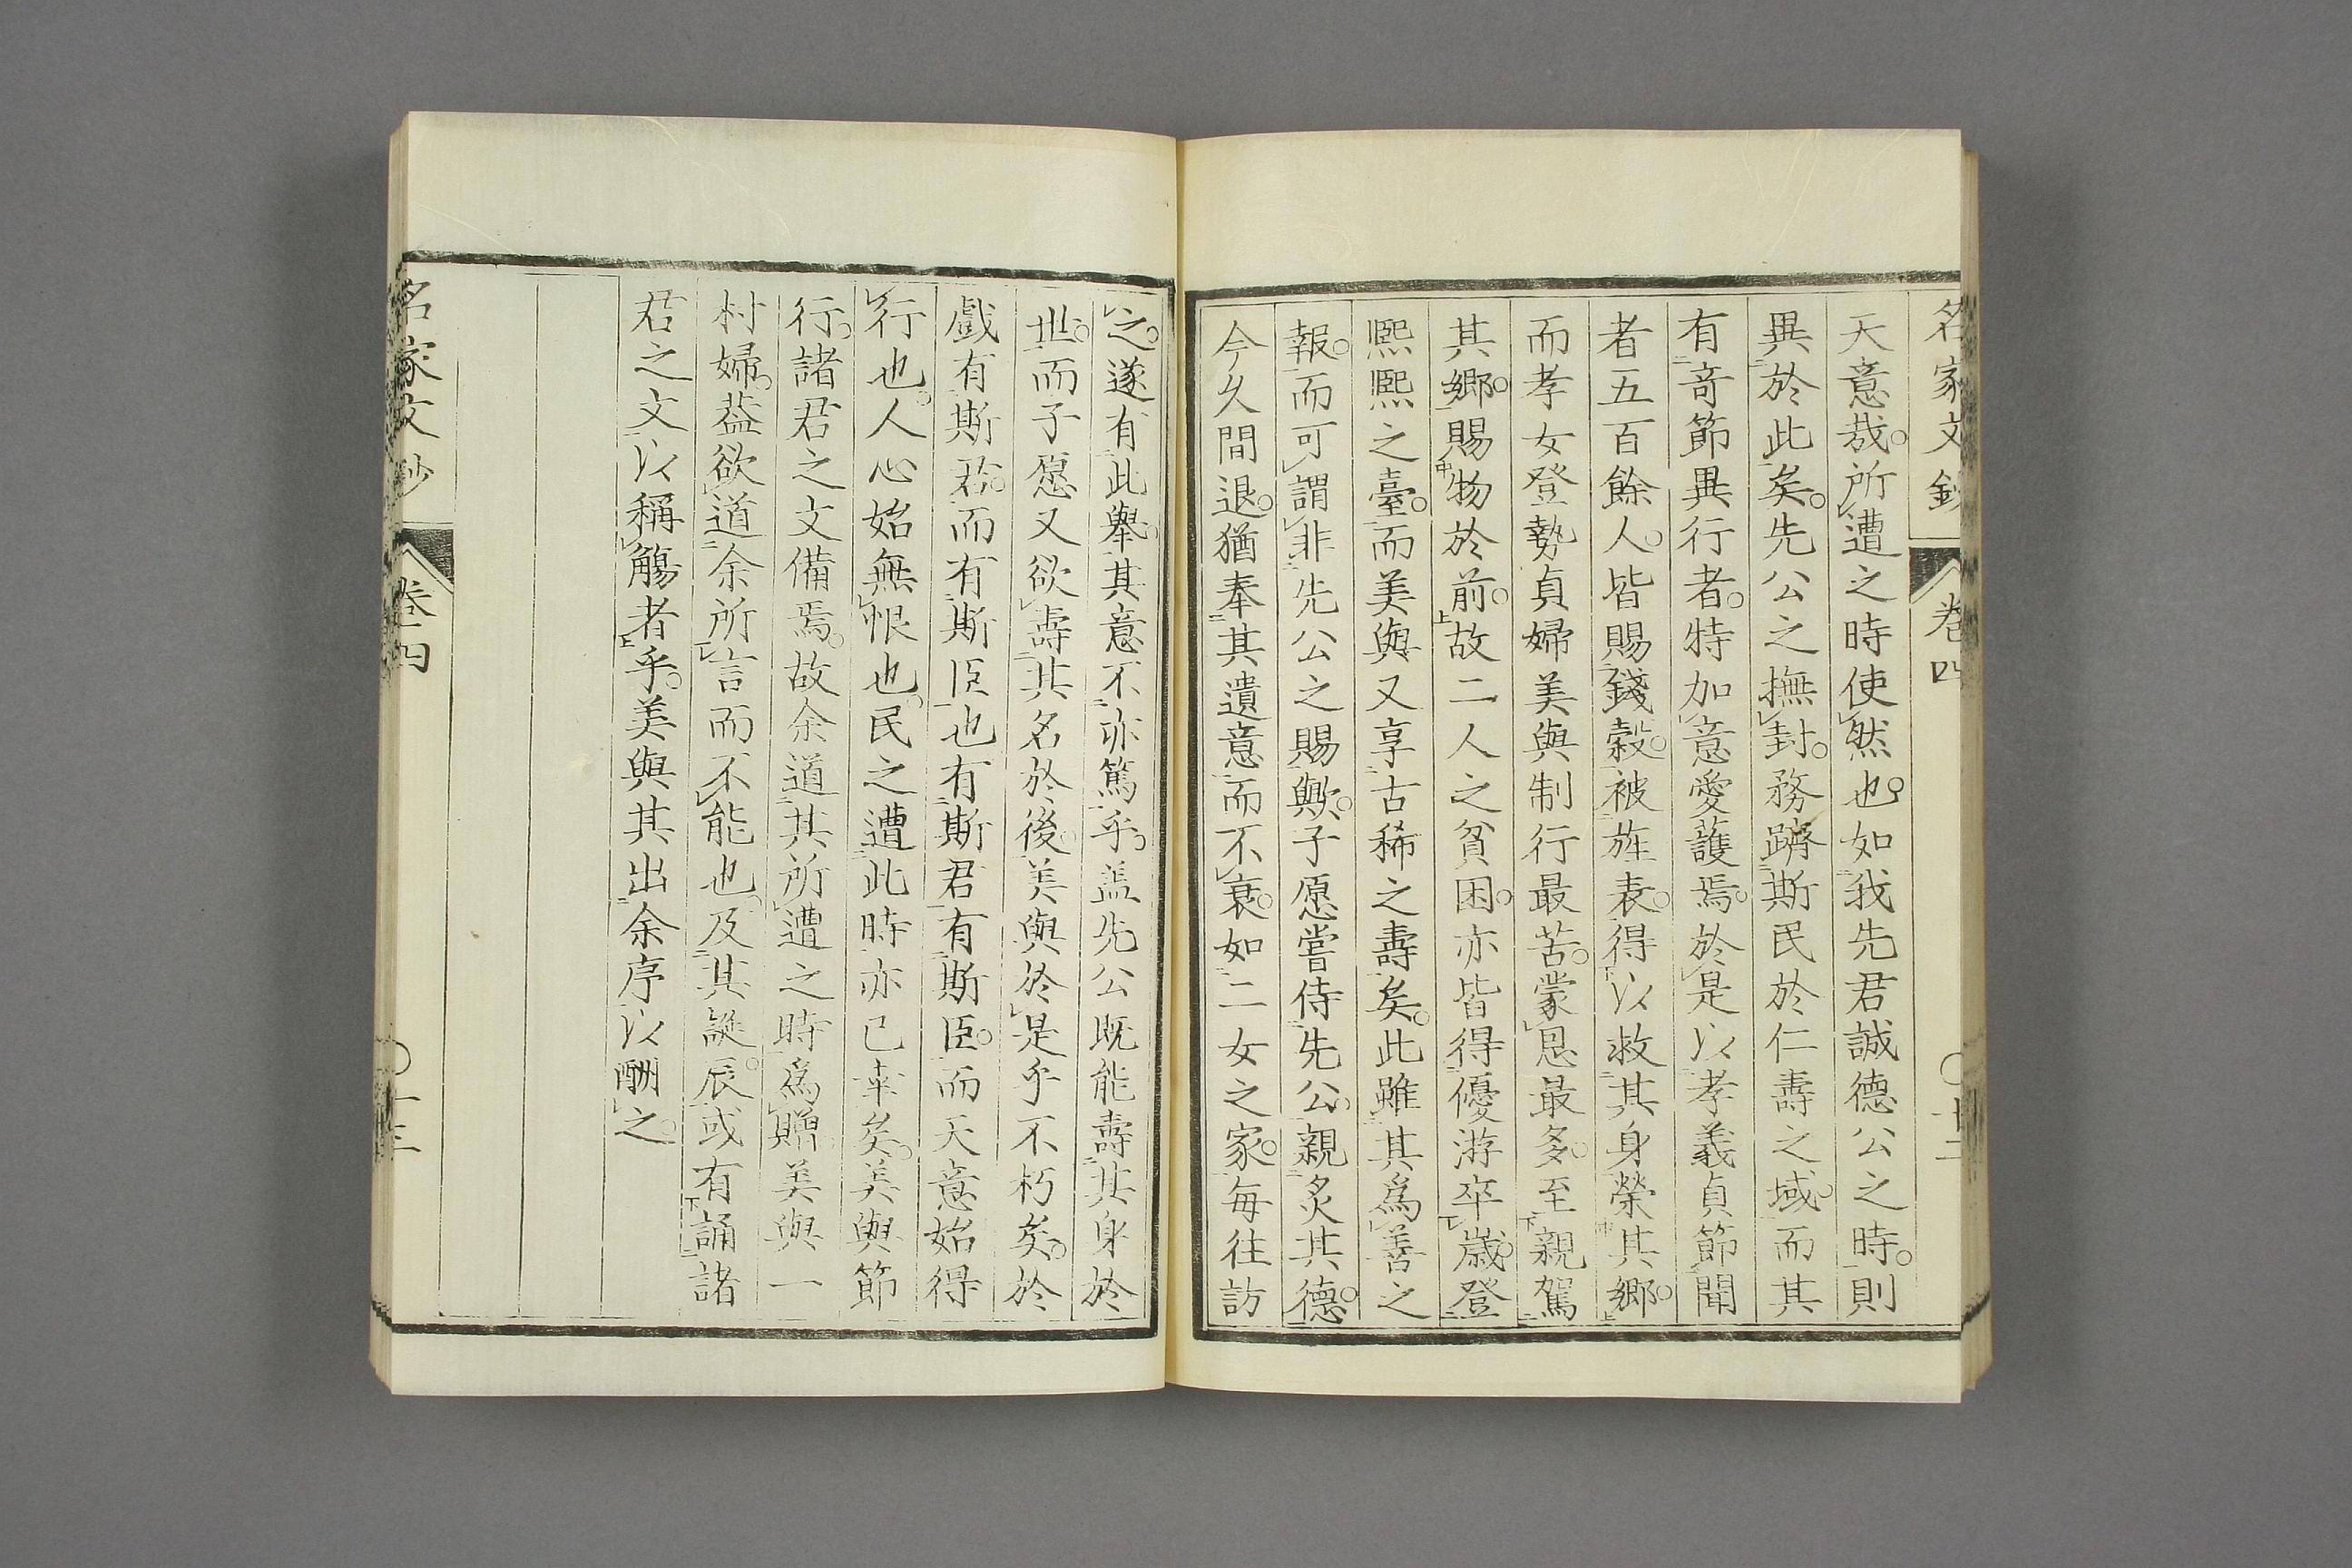 名家文鈔 卷四 〇廿二
天意哉。所遭之時使然也。如我先君誠德公之時。則
異於此矣。先公之撫封。務躋斯民於仁壽之域。而其
有奇節異行者。特加意愛護焉。於是以孝義貞節聞
者五百餘人。皆賜錢穀。被旌表。得以救其身榮其鄉。
而孝女登勢貞婦美與制行最苦。蒙恩最多。至親駕
其鄉。賜物於前。故二人之貧困。亦皆得優游卒歲。登
熈熈之臺。而美與又享古稀之壽矣。此雖其爲善之
報。而可謂非先公之賜歟。子愿嘗侍先公。親炙其德。
今久間退。猶奉其遺意而不衰。如二女之家。每往訪
之。遂有此舉。其意不亦篤乎。蓋先公既能壽其身於
世。而子愿又欲壽其名於後。美與於是乎不朽矣。於
戲有斯君。而有斯臣也有斯君有斯臣。而天意始得
行也。人心始無恨也。民之遭此時亦已幸矣。美與節
行。諸君之文備焉。故余道其所遭之時爲贈美與一
村婦。蓋欲道余所言而不能也。及其誕辰。或有誦諸
君之文以稱觴者乎。美與其出余序以酬之。
名家文鈔 卷四 〇